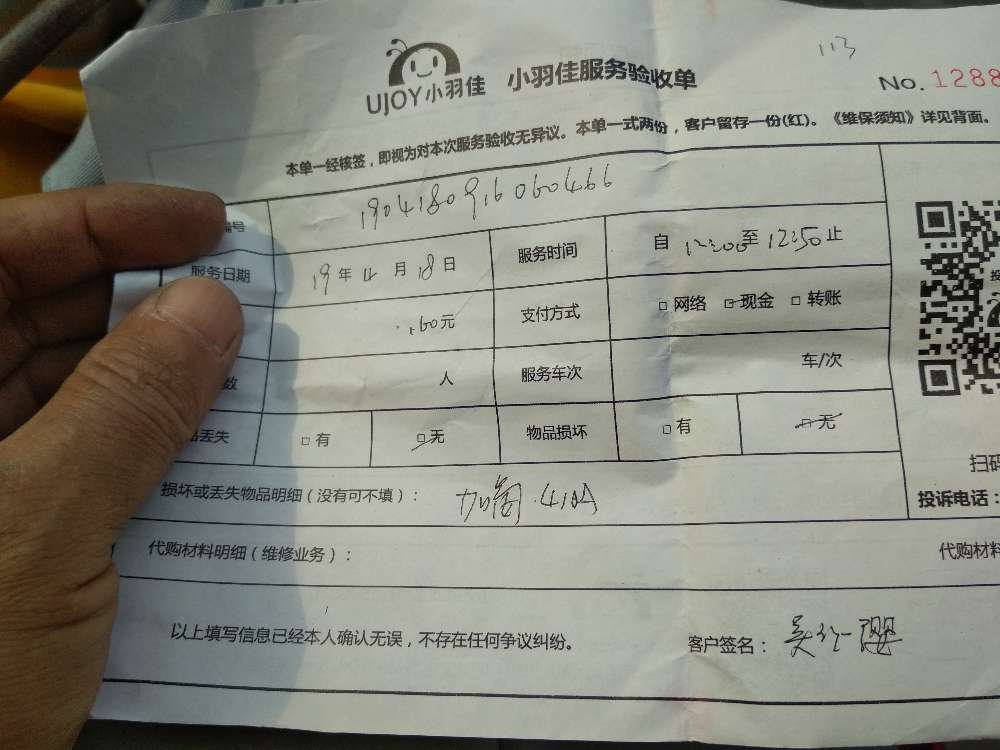 113
UJOY小羽佳 小羽佳服务验收单 No.1288
本单一经核签，即视为对本次服务验收无异议。本单一式两份，客户留存一份(红)。《维保须知》详见背面。
编号 190418091606046 6
服务日期 19年4月18日 服务时间 自12:00至12:50止
160元 支付方式 □网络 □现金 □转账
数 人 服务车次 车/次
品丢失 □有 □无 物品损坏 □有 □无
扫码
损坏或丢失物品明细（没有可不填）：
投诉电话：
代购材料明细（维修业务）： 代购材料
以上填写信息已经本人确认无误，不存在任何争议纠纷。 客户签名：